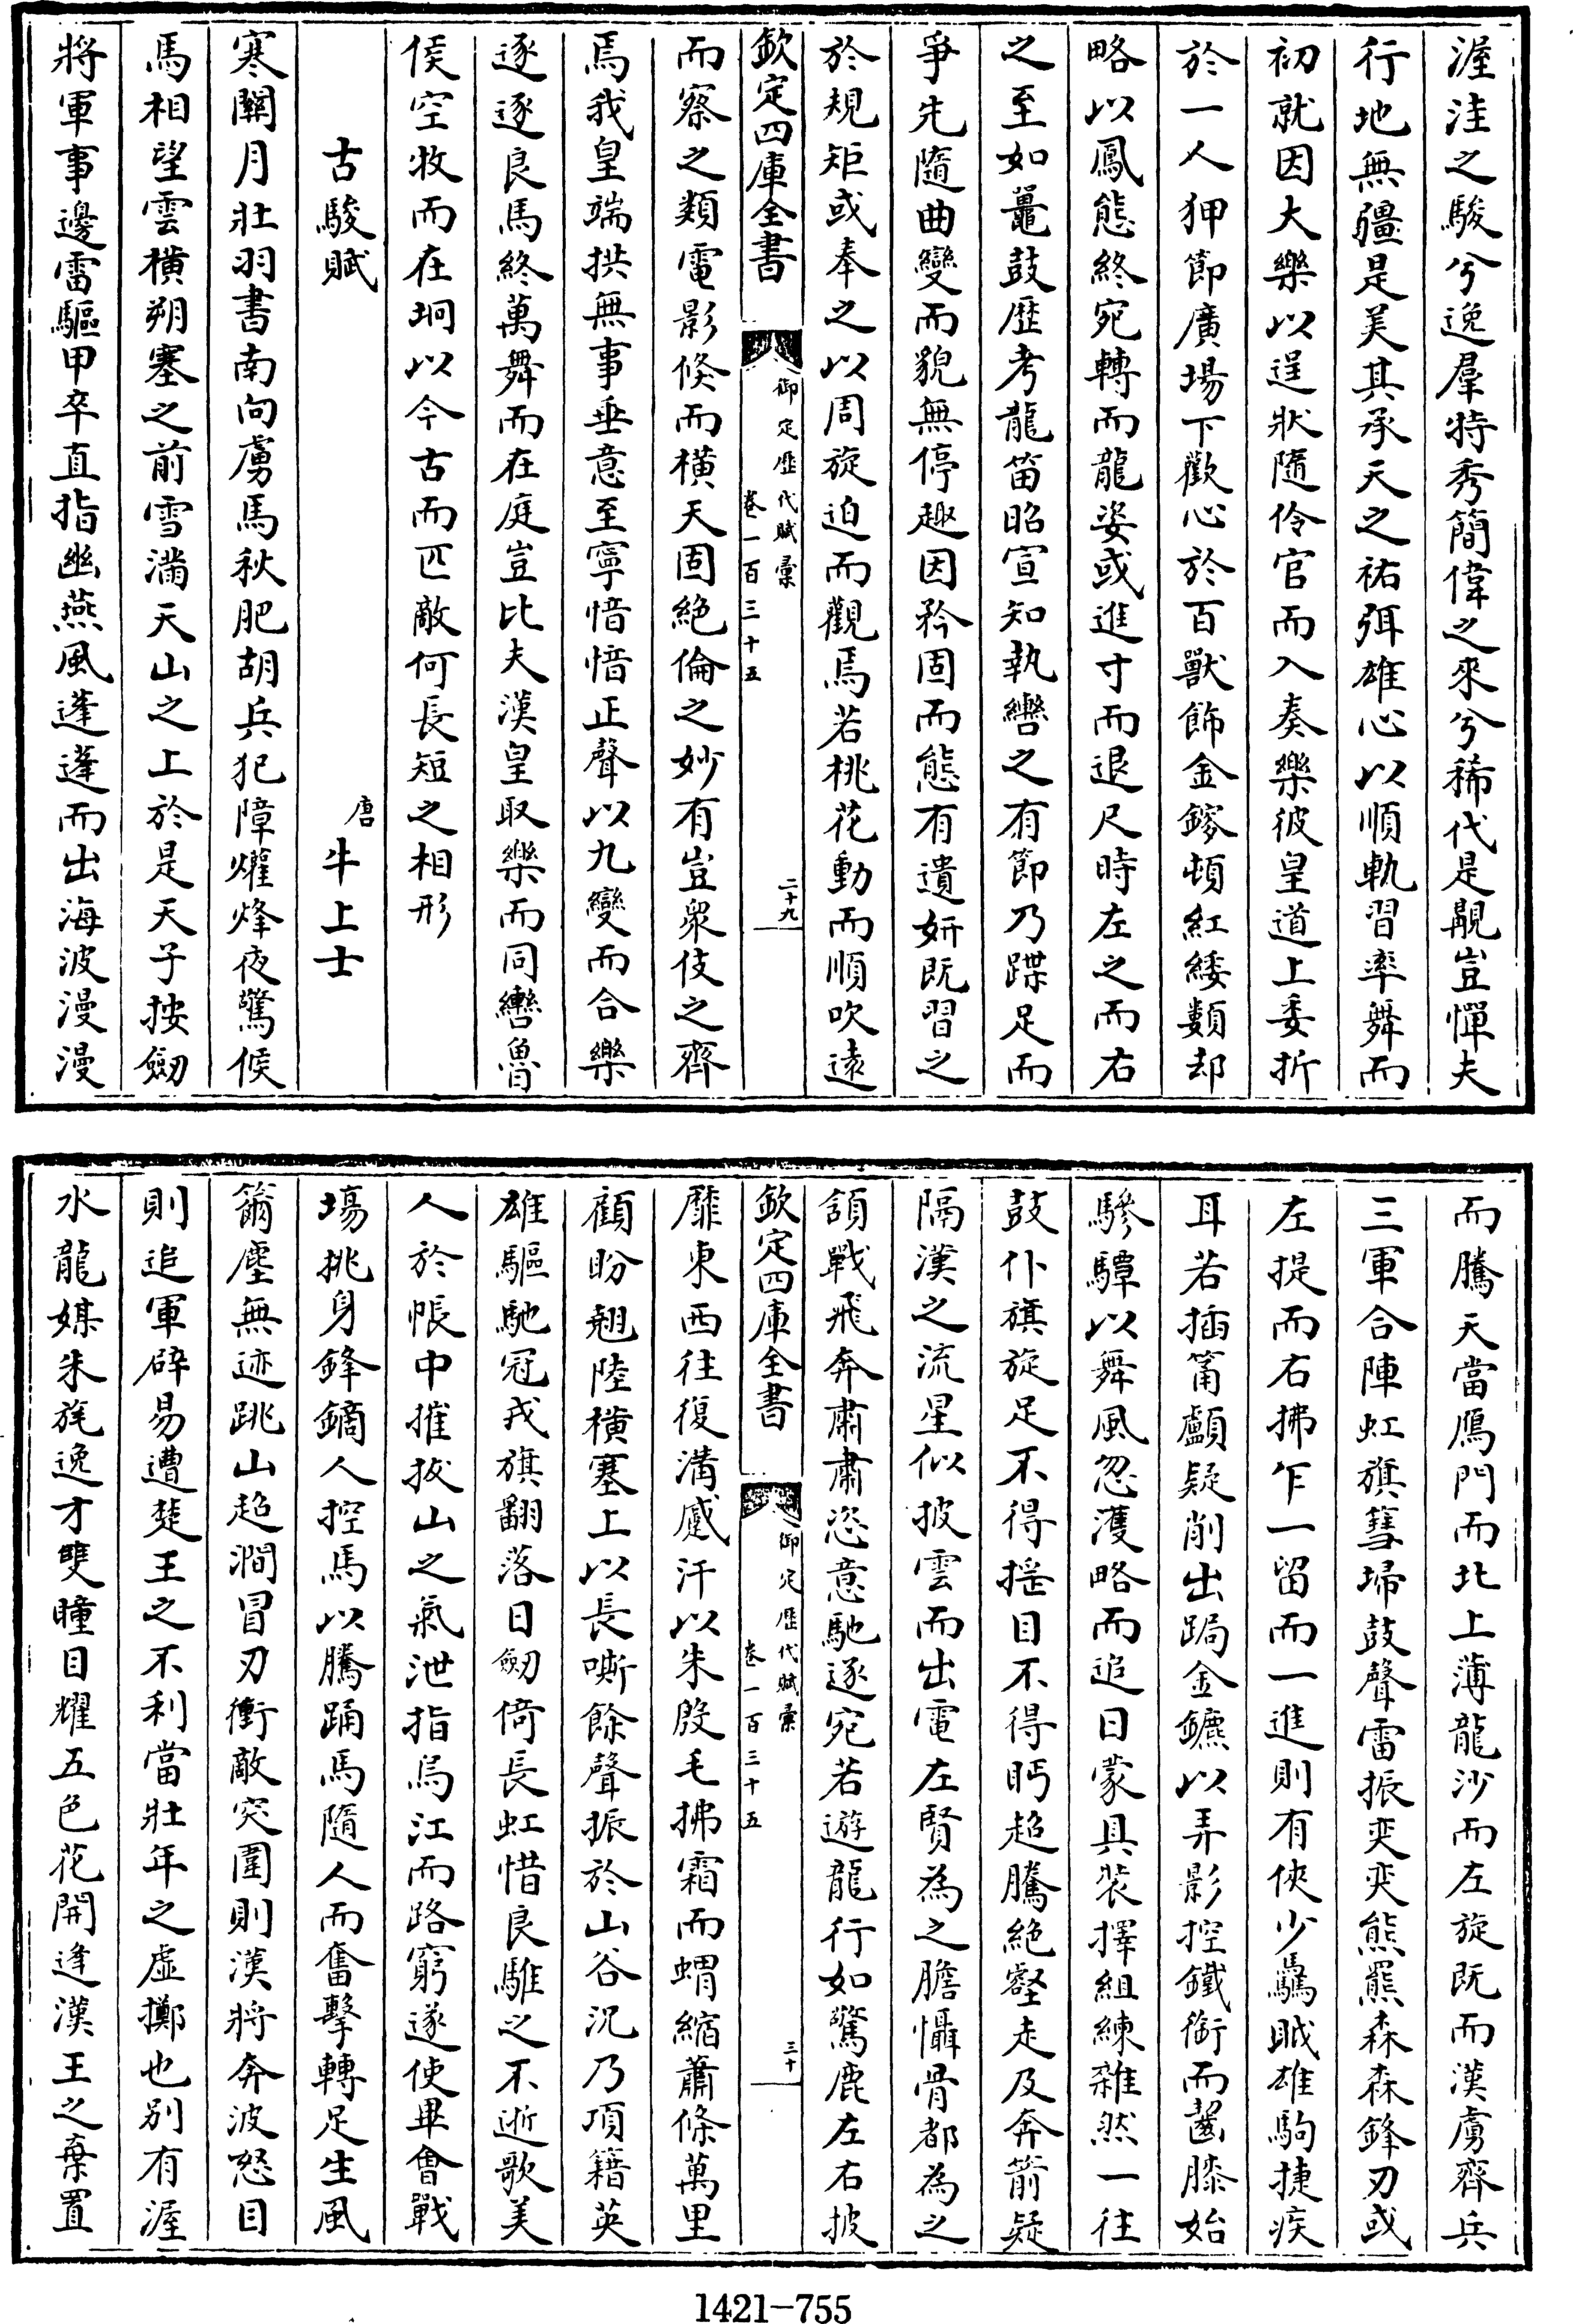 渥洼之駿兮逸羣特秀簡偉之來兮稀代是覯豈憚夫
行地無疆是美其承天之祐弭雄心以順軌習率舞而
初就因大樂以逞狀隨伶官而入奏樂彼皇道上委折
於一人狎節廣場下歡心於百獸飾金鏒頓紅緌類却
略以鳳態終宛轉而龍姿或進寸而退尺時左之而右
之至如鼉鼓歴考龍笛昭宣知執轡之有節乃蹀足而
爭先隨曲變而貌無停趣因矜固而態有遺妍既習之
於規矩或奉之以周旋迫而觀焉若桃花動而順吹遠
欽定四庫全書
御定歴代賦彙
卷一百三十五
二十九
而察之類電影倏而橫天固絶倫之妙有豈衆伎之齊
焉我皇端拱無事垂意至寧愔愔正聲以九變而合樂
逐逐良馬終萬舞而在庭豈比夫漢皇取樂而同轡魯
侯空牧而在坰以今古而匹敵何長短之相形
古駿賦
唐
牛上士
寒關月壯羽書南向虜馬秋肥胡兵犯障爟烽夜驚候
馬相望雲橫朔塞之前雪滿天山之上於是天子按劒
將軍事邊雷驅甲卒直指幽燕風蓬蓬而出海波漫漫
而騰天當鴈門而北上薄龍沙而左旋既而漢虜齊兵
三軍合陣虹旗彗埽鼓聲雷振奕奕熊羆森森鋒刃或
左提而右拂乍一留而一進則有俠少驕戚雄駒捷疾
耳若插筩顱疑削出跼金鑣以弄影控鐵銜而齧膝始
驂驔以舞風忽濩略而追日蒙具裝擇組練雜然一往
鼓仆旗旋足不得搖目不得眄超騰絶壑走及奔箭疑
隔漢之流星似披雲而出電左賢為之膽懾骨都為之
頷戰飛奔肅肅恣意馳逐宛若遊龍行如驚鹿左右披
欽定四庫全書
御定歴代賦彙
卷一百三十五
三十
靡東西往復溝蹙汗以朱殷毛拂霜而蝟縮蕭條萬里
顧盼翹陸橫塞上以長嘶餘聲振於山谷況乃項籍英
雄驅馳冠戎旗翻落日劒倚長虹惜良騅之不逝歌美
人於帳中摧拔山之氣泄指烏江而路窮遂使畢會戰
塲挑身鋒鏑人控馬以騰踊馬隨人而奮擊轉足生風
籋塵無迹跳山超澗冒刃衝敵突圍則漢將奔波怒目
則追軍辟易遭楚王之不利當壯年之虛擲也別有渥
水龍媒朱旄逸才雙瞳目耀五色花開逢漢王之棄置
1421-755